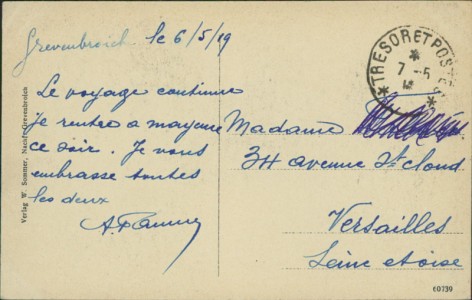 Grevenbroich le 6/5/19
Le voyage continue
je rentre a mayence
ce soir. Je vous
embrasse toutes
les deux
Madame
34 avenue St Cloud.
Versailles
Seine et oise
TRESOR ET POSTES
7 - 5
Verlag W. Sommer, Nachf. Grevenbroich
60739